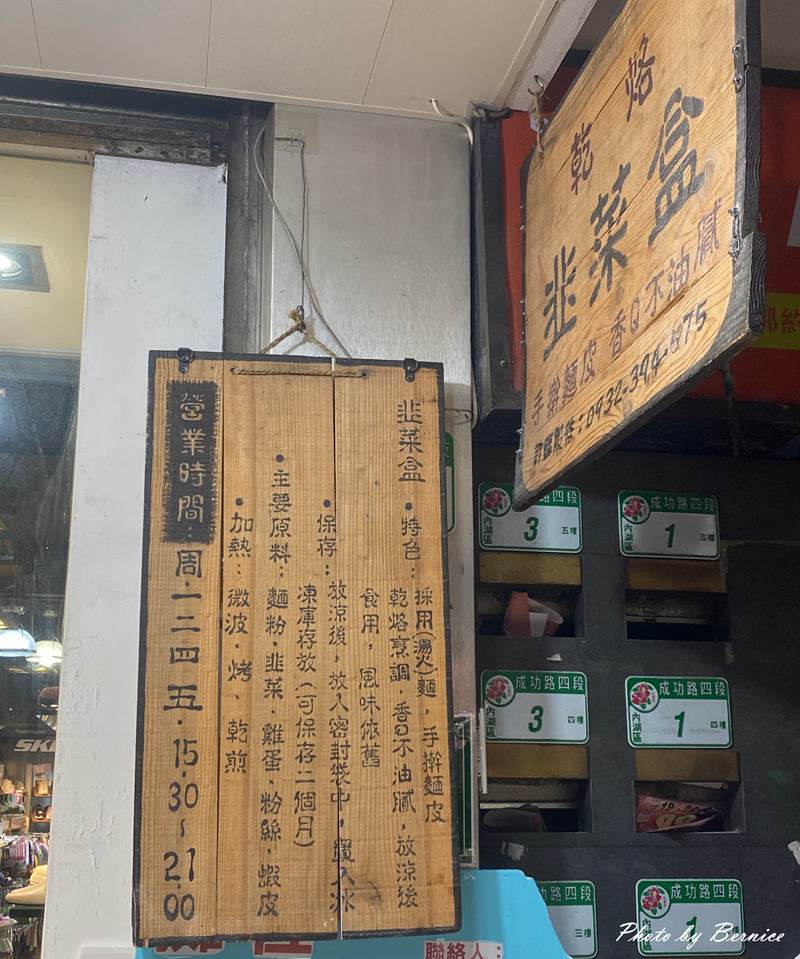 乾烙
韭菜盒
手擀麵皮 香Q不油膩
訂購服務：0932-394-575
韭菜盒
•特色：採用(燙)麵，手擀麵皮
乾烙烹調，香Q不油膩，放涼後
食用，風味依舊
•保存：放涼後，放入密封袋中，置入冰
凍庫存放（可保存二個月）
•主要原料：麵粉、韭菜、雞蛋、粉絲、蝦皮
•加熱：微波、烤、乾煎
營業時間：周一二四五．15:30~21:00
成功路四段
內湖區
3
五樓
成功路四段
內湖區
1
五樓
成功路四段
內湖區
3
四樓
成功路四段
內湖區
1
四樓
成功路四段
三樓
成功路四段
內湖區
1
聯絡人：
SK
Photo by Bernice